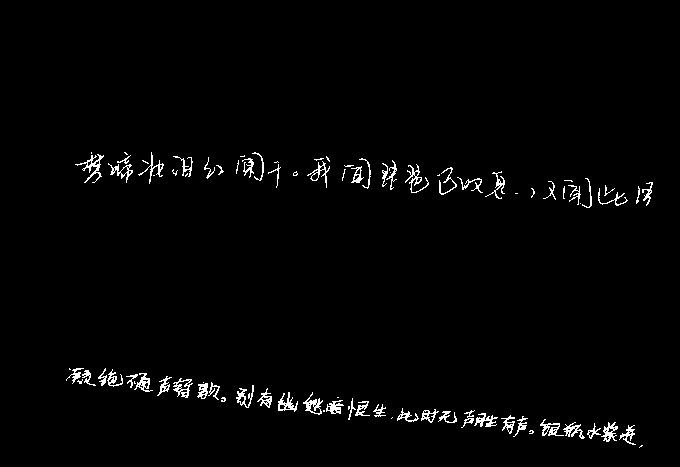 梦啼妆泪红阑干。我闻琵琶已叹息,又闻此语
凝绝不通声暂歇。别有幽愁暗恨生,此时无声胜有声。银瓶水浆迸,